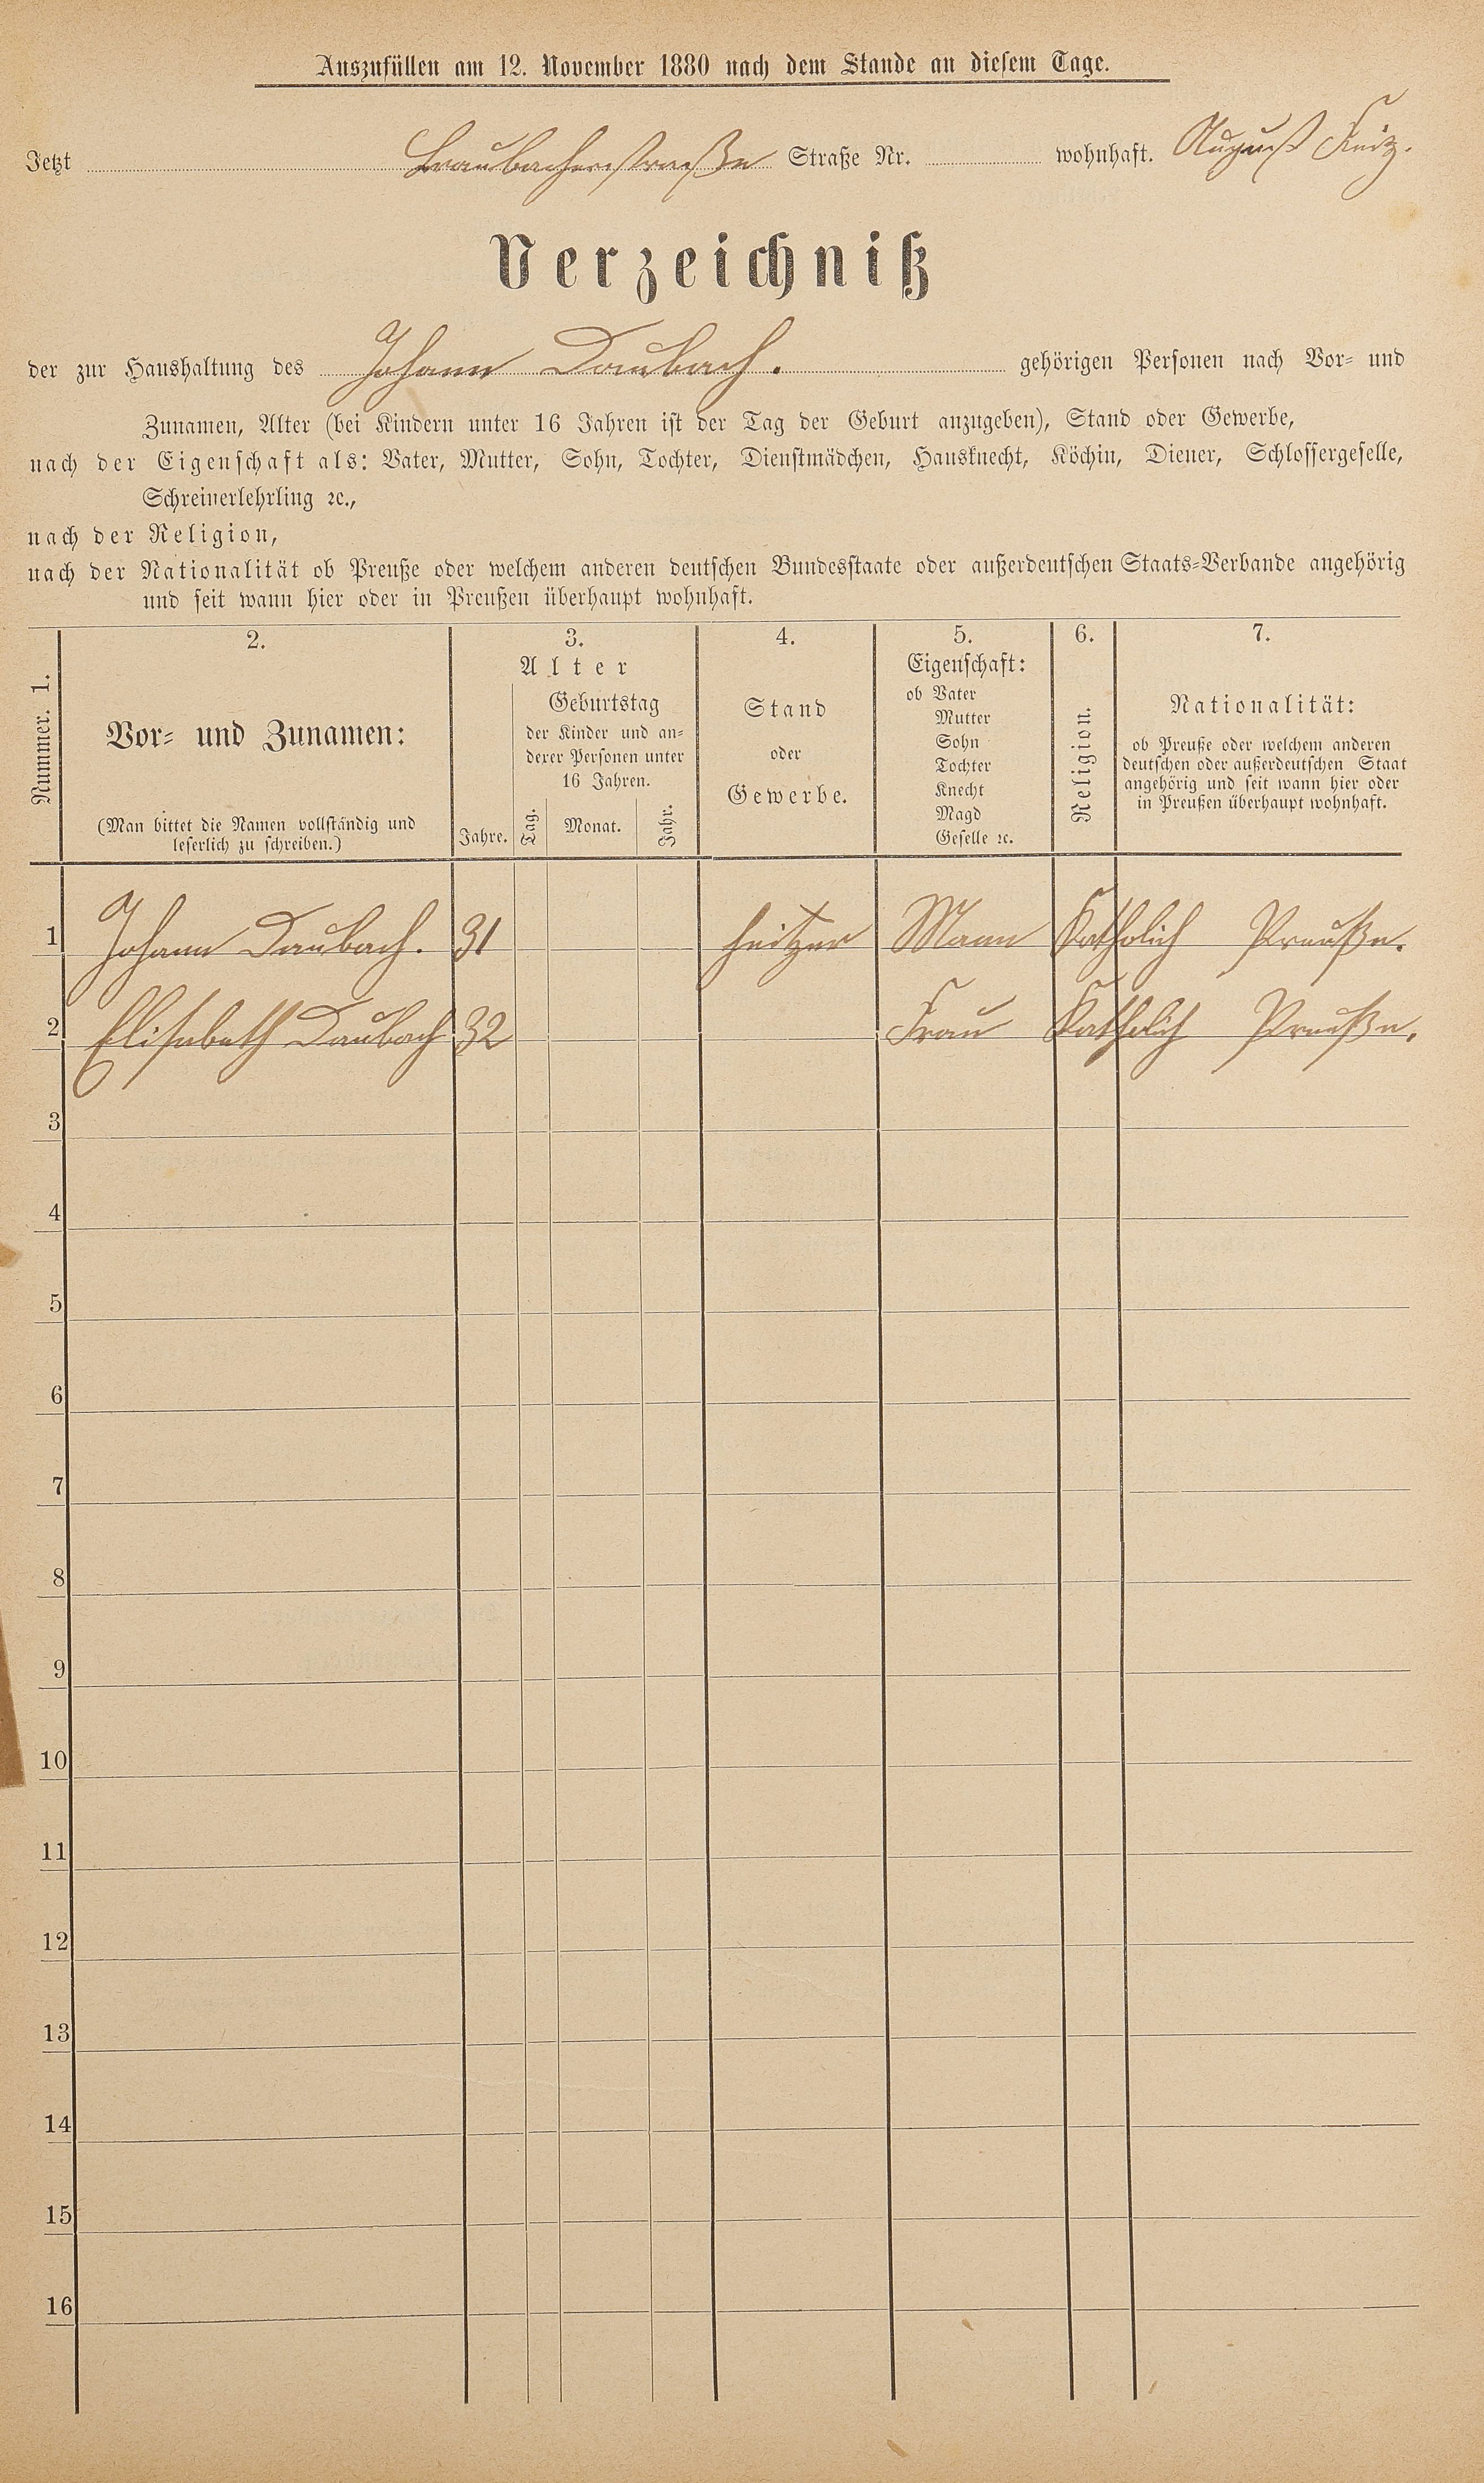 Auszufüllen am 12. November 1880 nach dem Stande an diesem Tage.
Jetzt Braubacherstraße Straße Nr. wohnhaft. August
Verzeichniß
der zur Haushaltung des Johann Daubach. gehörigen Personen nach Vor- und
Zunamen, Alter (bei Kindern unter 16 Jahren ist der Tag der Geburt anzugeben), Stand oder Gewerbe,
nach der Eigenschaft als: Vater, Mutter, Sohn, Tochter, Dienstmädchen, Hausknecht, Köchin, Diener, Schlossergeselle,
Schreinerlehrling ꝛc.,
nach der Religion,
nach der Nationalität ob Preuße oder welchem anderen deutschen Bundesstaate oder außerdeutschen Staats-Verbande angehörig
und seit wann hier oder in Preußen überhaupt wohnhaft.
Nummer. 1.
2.
Vor- und Zunamen:
(Man bittet die Namen vollständig und
leserlich zu schreiben.)
3.
Alter
Jahre.
Geburtstag
der Kinder und an-
derer Personen unter
16 Jahren.
Tag. Monat. Jahr.
4.
Stand
oder
Gewerbe.
5.
Eigenschaft:
ob Vater
Mutter
Sohn
Tochter
Knecht
Magd
Geselle ꝛc.
6.
Religion.
7.
Nationalität:
ob Preuße oder welchem anderen
deutschen oder außerdeutschen Staat
angehörig und seit wann hier oder
in Preußen überhaupt wohnhaft.
1 Johann Daubach. 31 heitzer Mann Katholich Preuße.
2 Elisabeth Daubach 32 Frau Katholich Preuße.
3
4
5
6
7
8
9
10
11
12
13
14
15
16